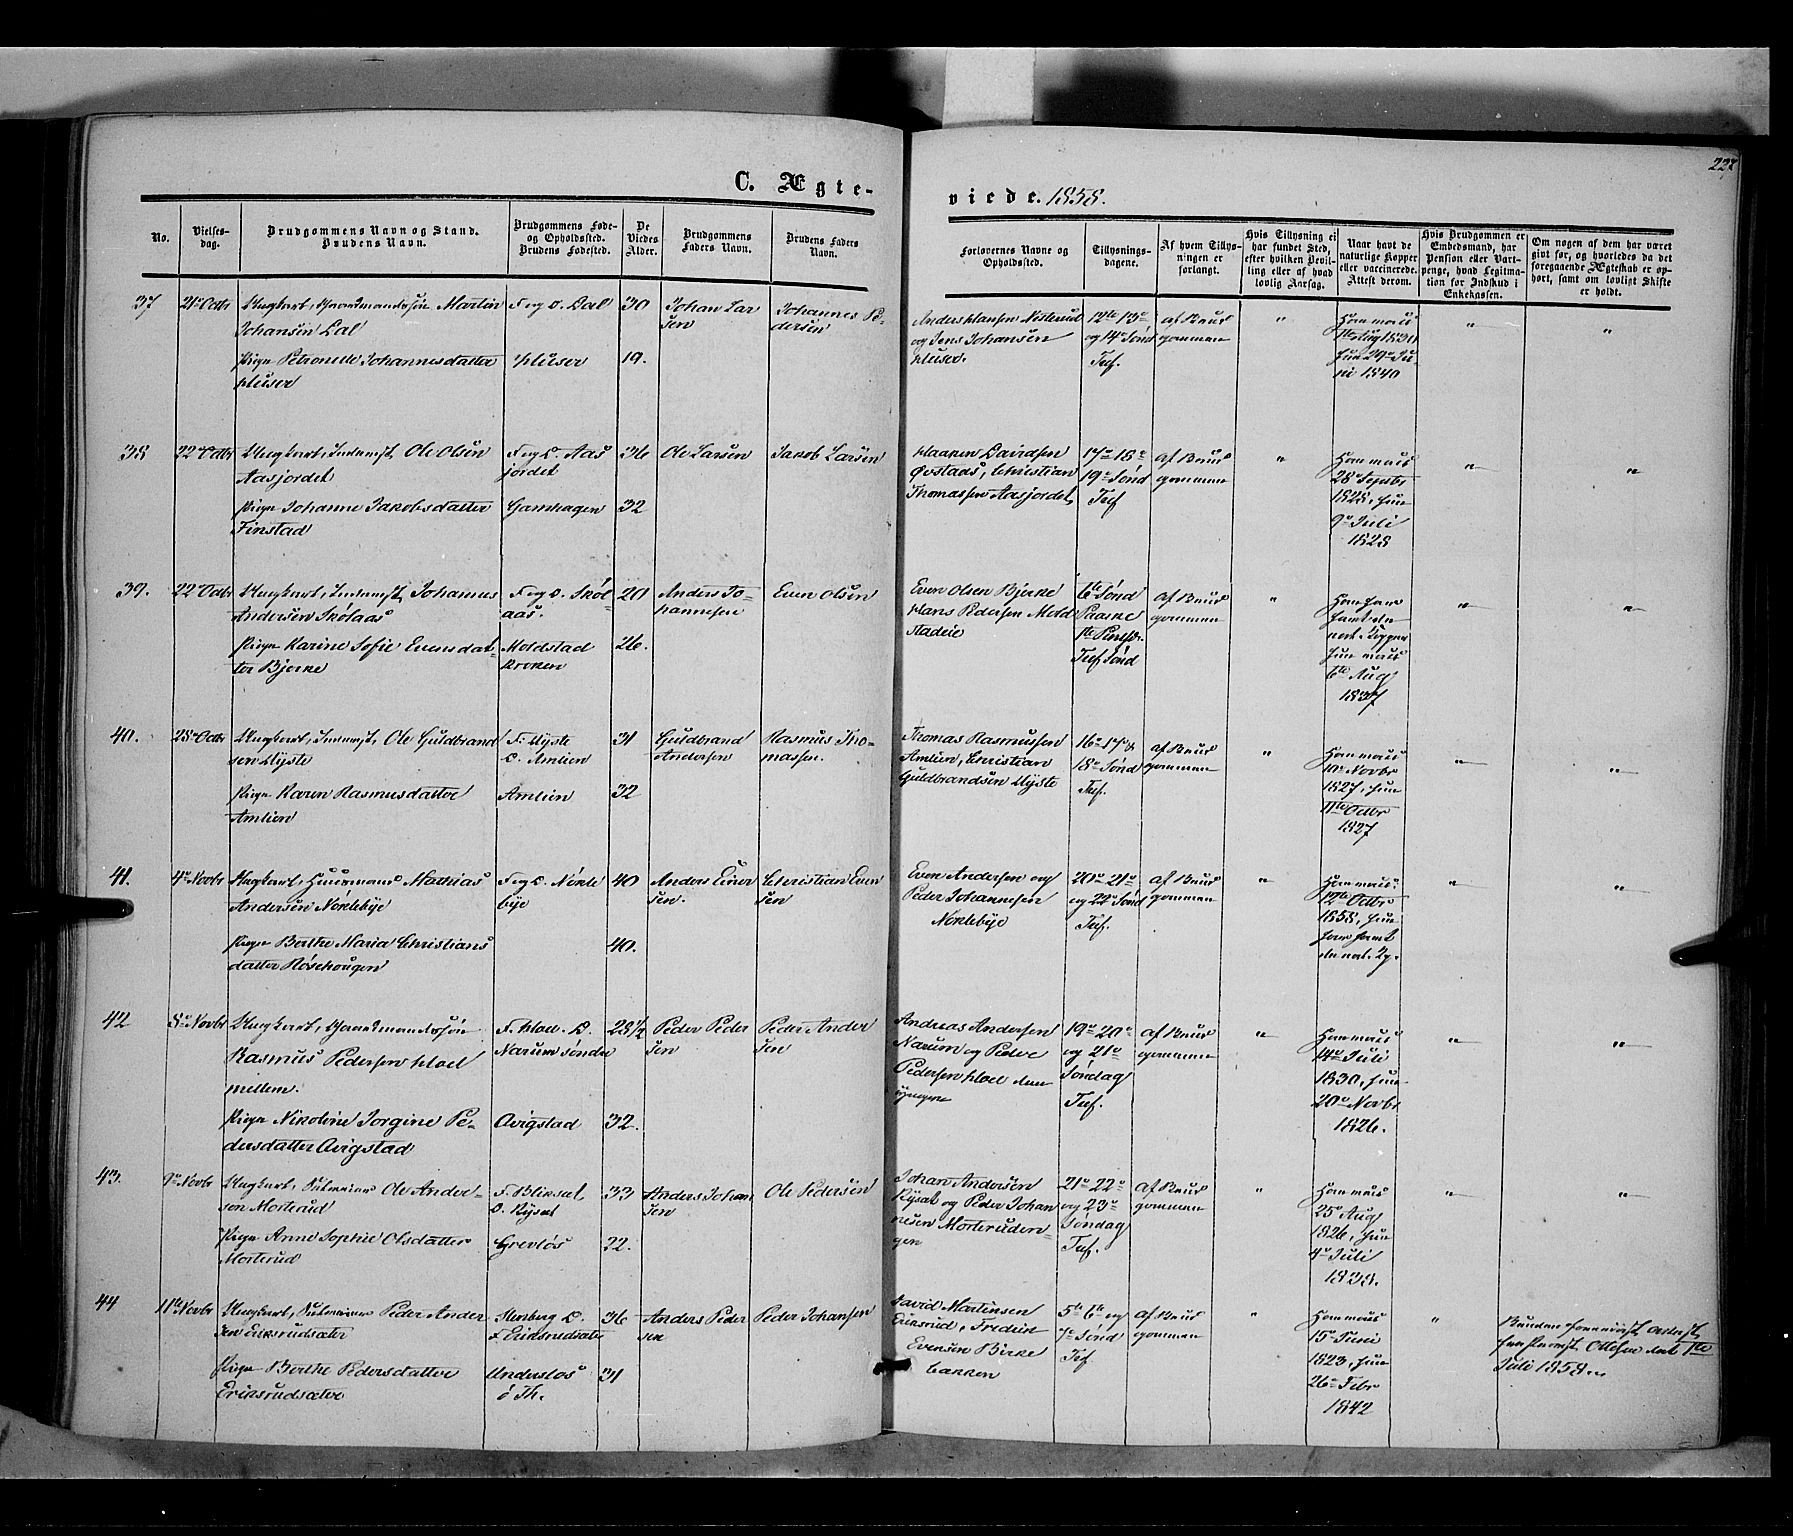 C. Ægte-
viede. 1858.
227
No.
Vielses-
dag.
Brudgommens Navn og Stand.
Brudens Navn.
Brudgommens Føde-
og Opholdssted.
Brudens Fødested.
De
Viedes
Alder.
Brudgommens
Faders Navn.
Brudens Faders
Navn.
Forlovernes Navne og
Opholdssted.
Tillysnings-
dagene.
Af hvem Tillys-
ningen er
forlangt.
Hvis Tillysning ei
har fundet Sted,
efter hvilken Bevil-
ling eller af hvad
lovlig Aarsag.
Naar havt de
naturlige Kopper
eller vaccinerede.
Attest derom.
Hvis Brudgommen er
Embedsmand, har
Pension eller Vart-
penge, hvad Legitima-
tion for Indskud i
Enkekassen.
Om nogen af dem har været
givt før, og hvorledes da det
foregaaende Ægteskab er op-
hørt, samt om lovligt Skifte
er holdt.
37
21de Octbr
Ungkarl, Gaardmandssøn Martin
Johansen Dal
Pige Petronelle Johannesdatter
F. og O. Dal
30
19.
Johan Lar
sen
Johannes Pe-
dersen
Anders Hansen
og Jens Johansen
12te 13de
og 14de Sønd
Tref.
af Brud
gommen
"
Ham vacc
1830
hun 29de Ju-
ni 1840
"
"
38
22de Octbr
Ungkarl, Inderst, Ole Olsen
Aasjordet
Pige Johanne Jakobsdatter
Finstad
F. og O. Aas
jordet
Gamhagen
36
32
Ole Larsen
Jakob Larsen
Haaken Davidsen
Øvstaas, Christian
Thomassen Aasjordet
17de 18de
19de Sønd
Tref
af Brud
gommen
"
Ham vacc
28de Septbr
1828, hun
9de Juli
1828
"
"
39.
22de Octbr
Ungkarl, Inderst, Johannes
Andersen Skölaas
Pige Karine Sofie Evensdat-
ter Bjerke
F. og O. Sköl-
aas.
Moldstad
kroken
20
26.
Anders Jo-
hannesen
Even Olsen
Even Olsen Bjerke
Hans Pedersen Mold
stadeie
6te Sønd
Paaske
1ste Pintse
Tref Sønd
af Brud
gommen
"
Ham have
havt de
nat. Kopper
hun vacc
6te Aug
1837
"
"
40.
28de Octbr
Ungkarl, Inderst, Ole Guldbrand
sen Myste
Pige Karen Rasmusdatter
Amlien
F. Myste
O. Amlien
Amlien
31
32
Guldbrand
Andersen
Rasmus Tho-
massen.
Thomas Rasmussen
Amlien, Christian
Guldbrandsen Myste
16de 17de &
18de Sønd
Tref.
af Brud
gommen
"
Ham vacc
10de Novbr
1827, hun
11te Octbr
1827
"
"
41.
4de Novbr
Ungkarl, Huusmand Mathias
Andersen Nøklebye
Pige Berthe Maria Christians
datter Røsehougen
F. og O. Nøkle
bye
40
40.
Anders Einer
sen.
Christian Even
sen
Even Andersen og
Peder Johannesen
Nøklebye
20de 21de
og 22de Sønd
Tref.
af Brud
gommen
"
Ham vacc.
12te Octbr
1858, hun
have havt
de nat. K.
"
"
42
8de Novbr
Ungkarl, Gaardmandssøn
Rasmus Pedersen Hoel
mellem.
Pige Nikoline Jorgine Pe-
dersdatter Avigstad
F. Hoel. O.
Narum Søndre
Avigstad
28 1/2
32.
Peder Peder
sen
Peder Ander
sen
Andreas Andersen
Narum og Peder
Pedersen Hoel den
yngre
19de 20de
og 21de
Søndag
Tref.
af Brud
gommen
"
Ham vacc
14de Juli
1830, hun
20de Novbr
1826.
"
"
43.
9de Novbr
Ungkarl, Ole Ander-
sen Morterud
Pige Anne Sophie Olsdatter
Morterud
F. Blikset
O. Rÿset
Grevløs
33
22.
Anders Johan
sen
Ole Pedersen
Johan Andersen
Rÿset og Peder Johan
nesen Morteruden-
gen
21de 22de
og 23de
Søndag
Tref.
af Brud
gommen
"
Ham vacc
25de Aug
1826, hun
4de Juli
1838.
"
"
44
11te Novbr
Ungkarl, Peder Ander
sen Eriksrudsæter
Pige Berthe Pedersdatter
Eriksrudsæter
Stenberg O.
F. Eriksrudsæter
Underslos
ø Th.
36
31
Anders Peder
sen
Peder Johansen
David Martinsen
Eriksrud, Fredrik
Evensen Birke
bakken
5te 6te og
7de Sønd
Tref.
af Brud
gommen
"
Ham vacc
15de Juni
1823, hun
26de Febr
1842
"
Bruden
Juli 1858.